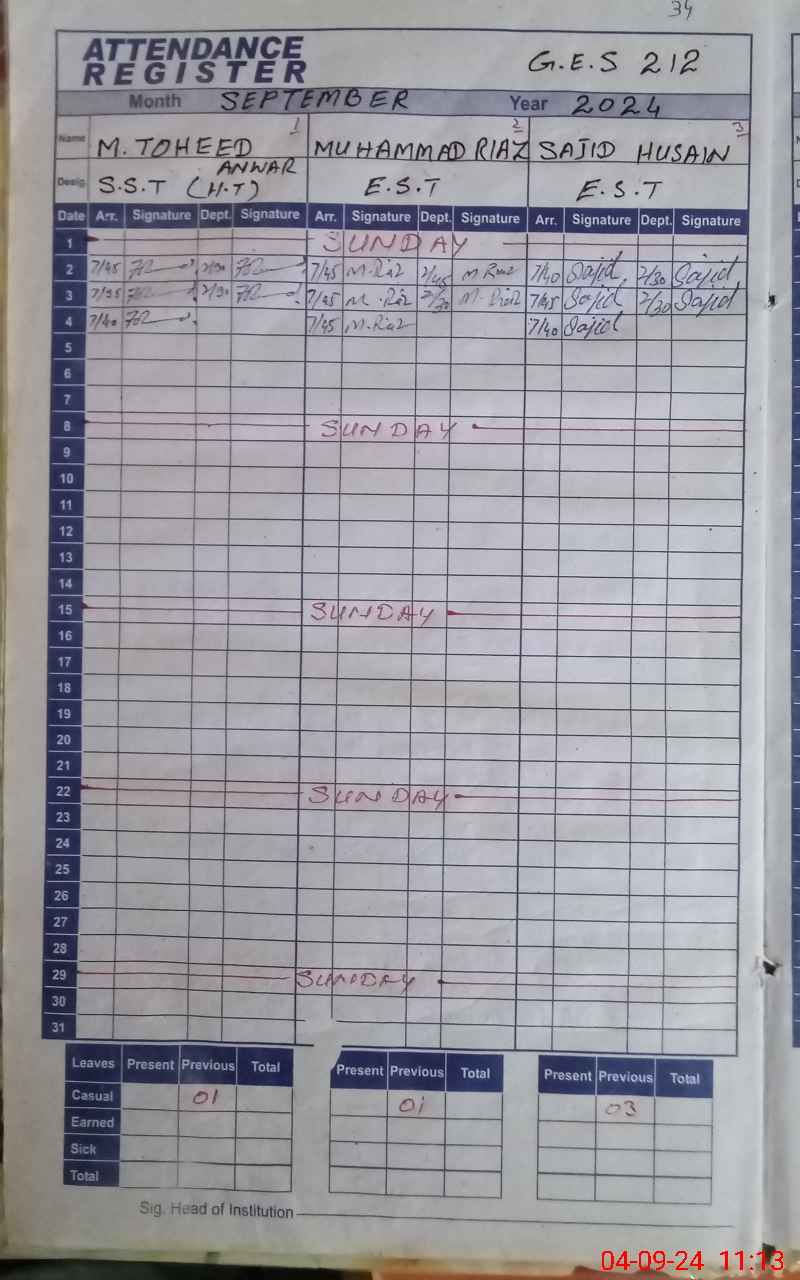 34
ATTENDANCE
REGISTER
G.E.S 212
Month SEPTEMBER Year 2024
1 2 3
Name M. TOHEED MUHAMMAD RIAZ SAJID HUSAIN
ANWAR
Desig. S.S.T (H.T) E.S.T E.S.T
Date Arr. Signature Dept. Signature Arr. Signature Dept. Signature Arr. Signature Dept. Signature
1 SUNDAY
2 7/45 2/30 7/45 M.Riaz 2/45 M Riaz 7/40 Sajid 2/30 Sajid
3 7/35 2/30 7/45 M.Riaz 2/30 M.Riaz 7/45 Sajid 2/30 Sajid
4 7/40 7/45 M.Riaz 7/40 Sajid
5
6
7
8 SUNDAY
9
10
11
12
13
14
15 SUNDAY
16
17
18
19
20
21
22 SUNDAY
23
24
25
26
27
28
29 SUNDAY
30
31
Leaves Present Previous Total Present Previous Total Present Previous Total
Casual 01 01 03
Earned
Sick
Total
Sig. Head of Institution
04-09-24 11:13